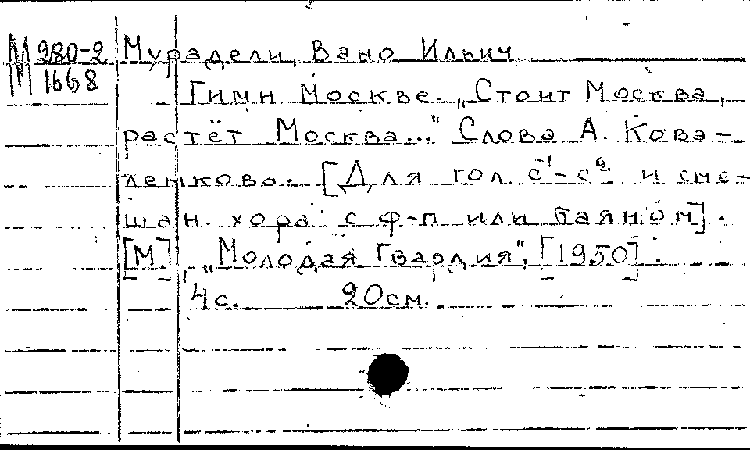 М 280-2 Мурадели, Вано Ильич
М 1668
Гимн Москве. „Стоит Москва,
растёт Москва..." Слова А. Кова-
ленкова. [Для гол. c¹-c² и сме-
шан. хора с ф-п или баяном].
[М.], „Молодая Гвардия", [1950].
4с. 20см.